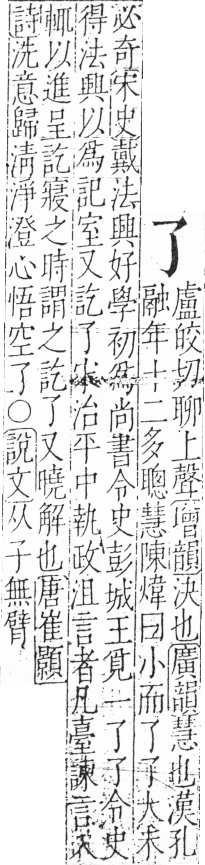 了
盧皎切聊上聲增韻決也廣韻慧也漢孔
融年十二多聰慧陳煒曰小而了了大未
必奇宋史戴法興好學初為尚書令史彭城王覓一了了令史
得法興以為記室又訖了宋治平中執政沮言者凡臺諫言入
輒以進呈訖寢之時謂之訖了又曉解也唐崔顥
詩洗意歸清淨澄心悟空了○說文从子無臂